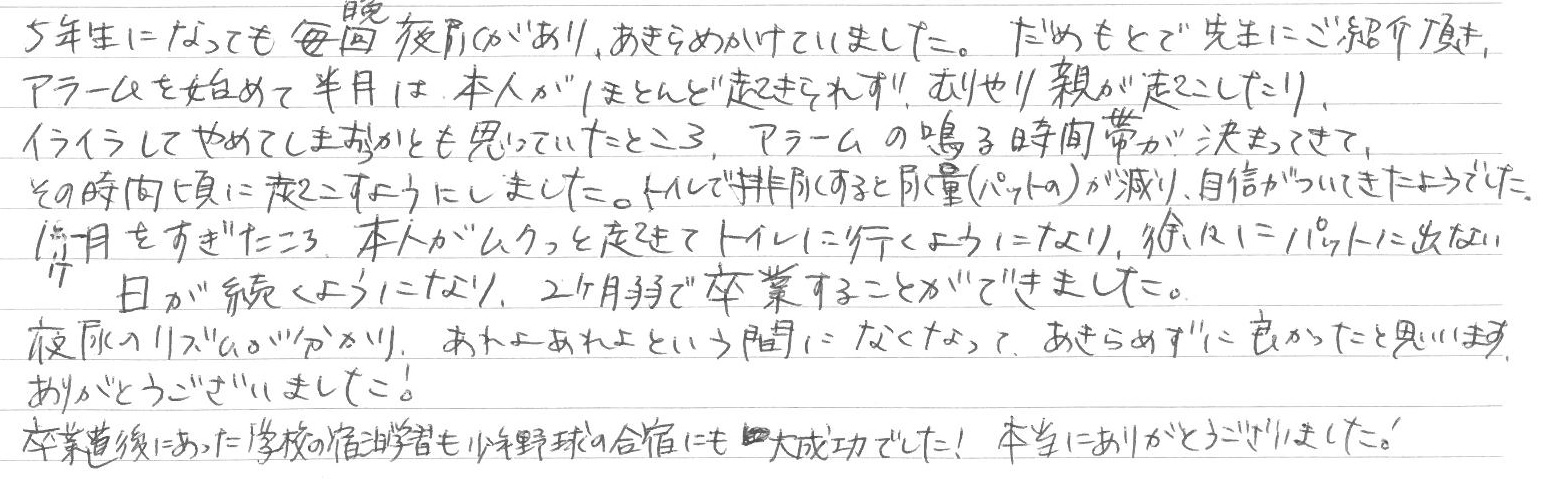 5年生になっても毎晩夜尿があり、あきらめかけていました。だめもとで先生にご紹介頂き、
アラームを始めて半月は本人がほとんど起きられず、むりやり親が起こしたり、
イライラしてやめてしまおうかとも思っていたところ、アラームの鳴る時間帯が決まってきて、
その時間頃に起こすようにしました。トイレで排尿すると尿量(パットの)が減り、自信がついてきたようでした。
1ヶ月をすぎたころ、本人がムクっと起きてトイレに行くようになり、徐々にパットに出ない
日が続くようになり、2ヶ月弱で卒業することができました。
夜尿のリズムが分かり、あれよあれよという間になくなって、あきらめずに良かったと思います。
ありがとうございました!
卒業直後にあった学校の宿泊学習も少年野球の合宿にも大成功でした! 本当にありがとうございました!